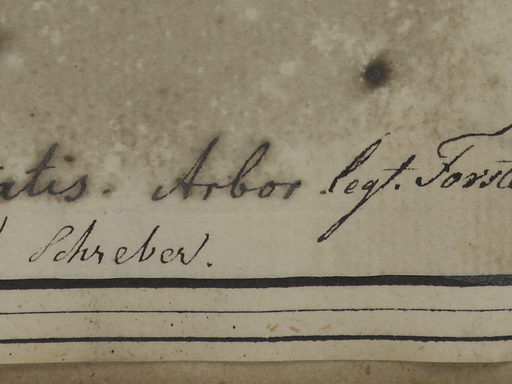 atis. Arbor legt. Forste
Schreber.